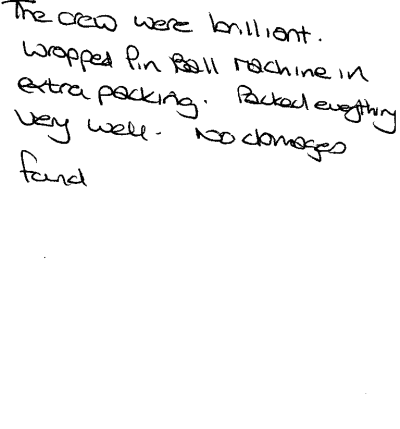 The crew were brilliant.
Wrapped Pin Ball machine in
extra packing. Packed everything
very well. No damages
found